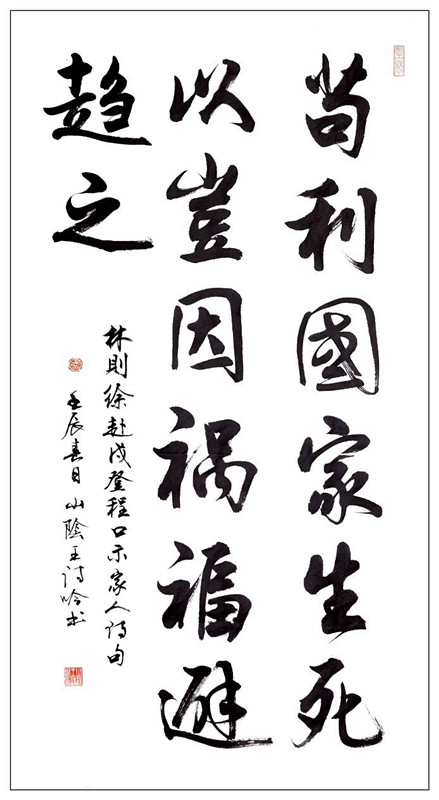 苟利國家生死
以豈因祸福避
趋之
林則徐赴戍登程口示家人诗句
壬辰春日山陰王诗吟书